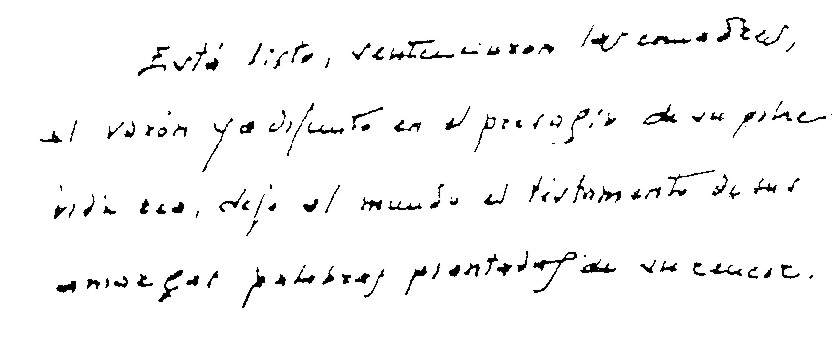 Está listo, sentenciaron las comadres,
el varón ya difunto en el presagio de su pobre
vida, dejo al mundo el testamento de sus
amargas palabras plantadas de su rencor.